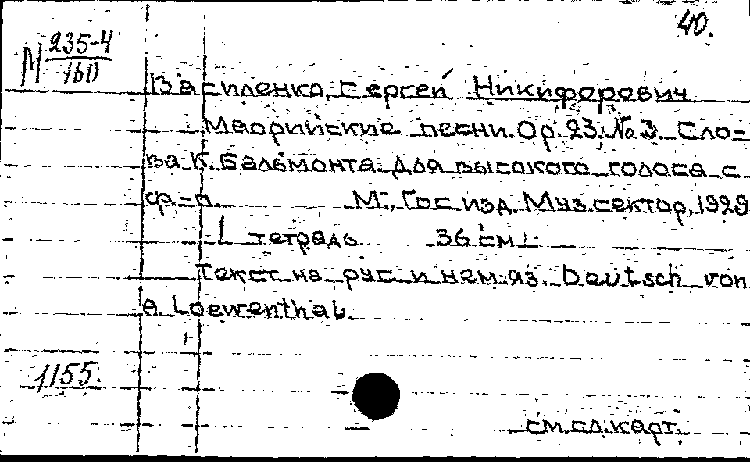 40.
М 235-4
160
Василенко, Сергей Никифорович
Маорийские песни. Ор. 23, №3. Сло=
ва К. Бальмонта. Для высокого голоса с
ф-п. М., Гос. изд. Муз. сектор, 1929
1 тетрадь 36 см.
Текст на рус. и нем. яз. Deutsch von
A. Loewenthal.
1155.
см. сл. карт.